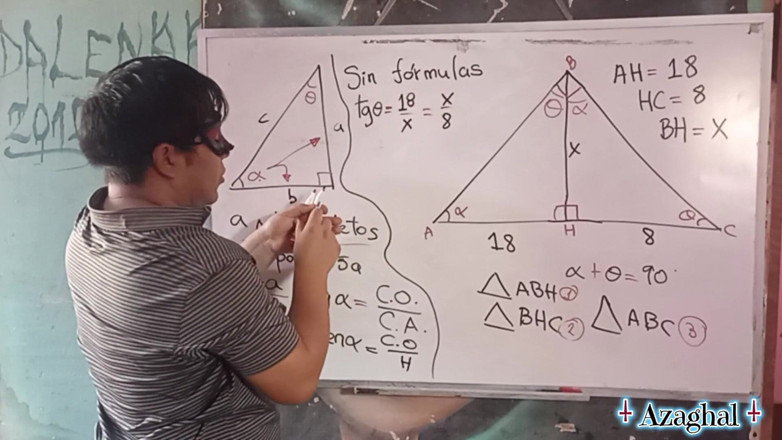 DALENKK
2019
θ
c
a
α
b
a
etos
a
α = C.O.
C.A.
enα = C.O
H
Sin fórmulas
tgθ = 18/x = x/8
B
θ α
x
α
θ
A
H
C
18
8
AH = 18
HC = 8
BH = X
α + θ = 90°
△ABH ①
△BHC ② △ABC ③
Azaghal